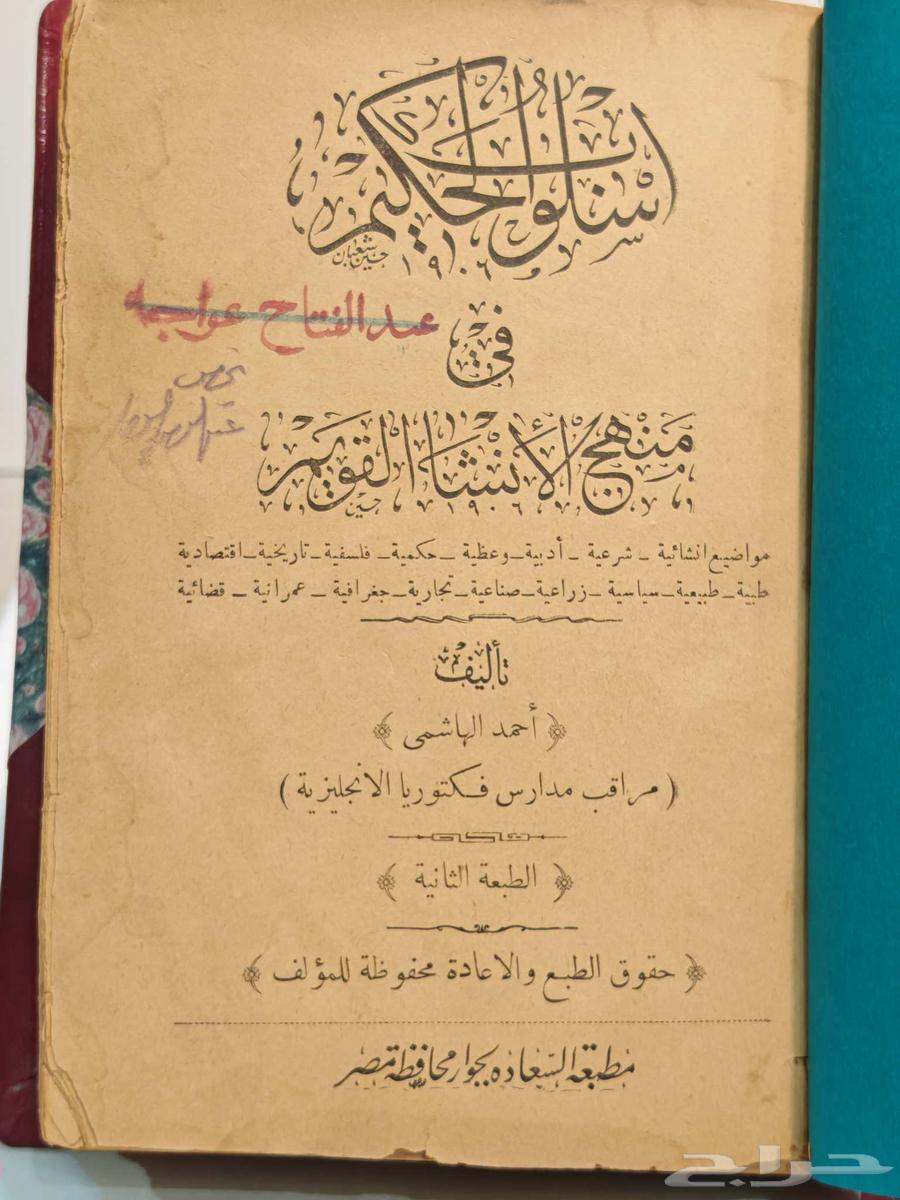 أسلوب الحكيم
١٩٠٦
حسين شعبان
في
عبد الفتاح
منهج الأنشاء القويم
١٩٠٦
حسين
مواضيع انشائية ـ شرعية ـ أدبية ـ وعظية ـ حكمية ـ فلسفية ـ تاريخية ـ اقتصادية
طبية ـ طبيعية ـ سياسية ـ زراعية ـ صناعية ـ تجارية ـ جغرافية ـ عمرانية ـ قضائية
تأليف
﴿ أحمد الهاشمى ﴾
( مراقب مدارس فكتوريا الانجليزية )
﴿ الطبعة الثانية ﴾
﴿ حقوق الطبع والاعادة محفوظة للمؤلف ﴾
مطبعة السعاده بجوار محافظة مصر
حراج